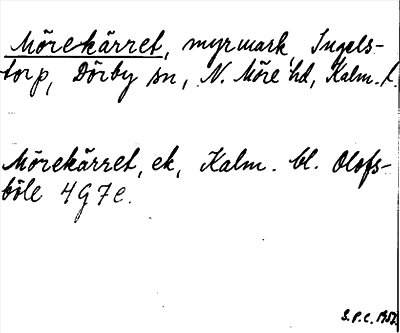 Mörekärret, myrmark, Ingels-
torp, Dörby sn, N. Möre hd, Kalm. l.
Mörekärret, ek, Kalm. bl. Olofs-
böle 4 G 7 e.
S.P.C. 1952